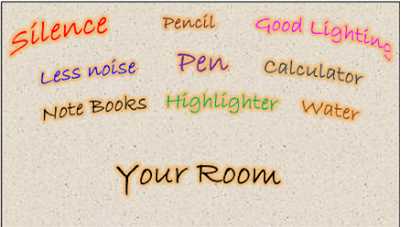 Silence Pencil Good Lighting
Less noise Pen Calculator
Note Books Highlighter Water
Your Room